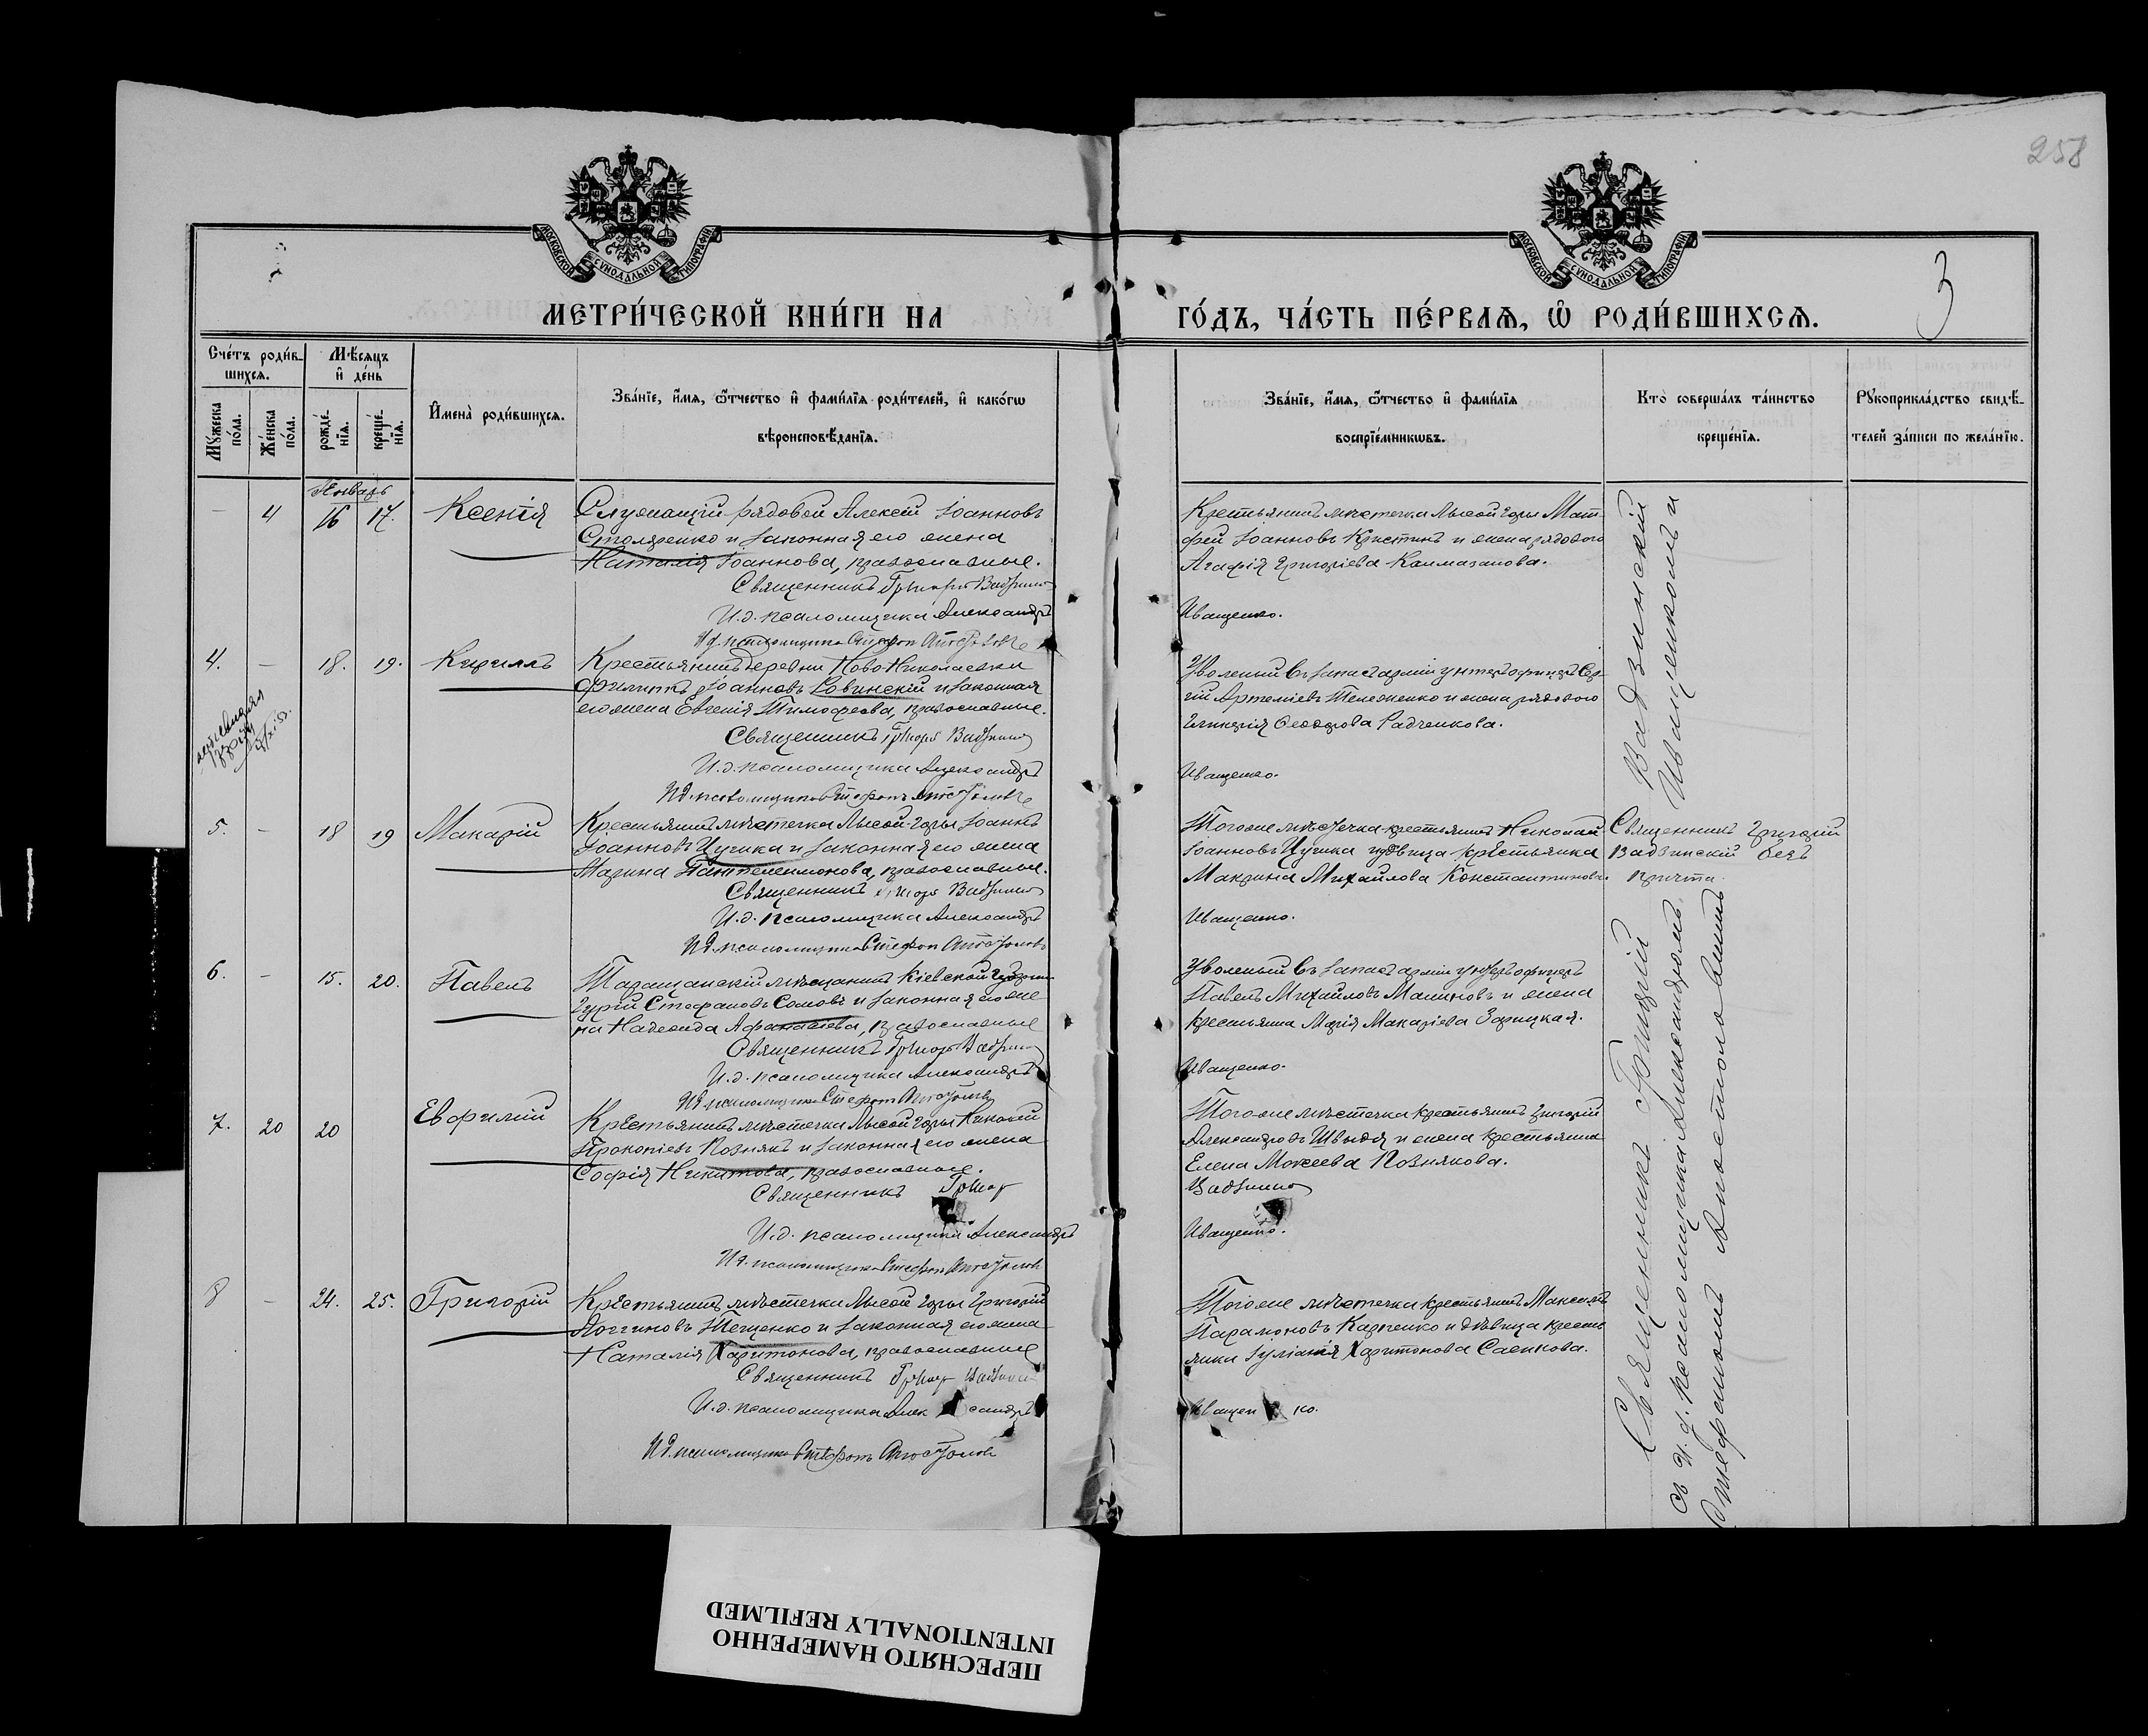 258
МОСКОВСКОЙ СУНОДАЛЬНОЙ ТИПОГРАФІИ
МОСКОВСКОЙ СУНОДАЛЬНОЙ ТИПОГРАФІИ
3
МЕТРИ́ЧЕСКОЙ КНИ́ГИ НА
ГО́ДЪ, ЧА́СТЬ ПЕ́РВАѦ, Ѡ҆ РОДИ́ВШИХСѦ.
Сче́тъ роди́в-
шихсѧ.
Мѣ́сѧцъ
и҆ де́нь
Мꙋ́жеска по́ла.
Же́нска по́ла.
рожде́-
нїѧ.
креще́-
нїѧ.
И҆мена̀ роди́вшихсѧ.
Зва́нїе, и҆́мѧ, ѻ҆́тчество и҆ фами́лїѧ роди́телей, и҆ како́гѡ
вѣроисповѣ́данїѧ.
Зва́нїе, и҆́мѧ, ѻ҆́тчество и҆ фами́лїѧ
воспрїе́мникѡвъ.
Кто̀ соверша́лъ та́инство
креще́нїѧ.
Рꙋкоприкла́дство свидѣ́-
телей за́писи по жела́нїю.
Январь
- 4 16 17. Ксенія
Служащій рядовой Алексій Іоанновъ
Столяренко и законная его жена
Наталія Іоаннова, православные.
Священникъ Григорій Вадзинскій
И.д. псаломщика Александръ
И.д. псаломщика Стефанъ Апостоловъ
Крестьянинъ мѣстечка Лысой горы Мат-
фей Іоанновъ Кристинъ и жена рядового
Агафія Григоріева Калмазанова.
Иващенко.
4. - 18. 19. Кириллъ
Крестьянинъ деревни Ново-Николаевки
Филиппъ Іоанновъ Ровинскій и законная
его жена Евгенія Тимофеева, православные.
Священникъ Григорій Вадзинскій
И.д. псаломщика Александръ
И.д. псаломщика Стефанъ Апостоловъ
Уволеный въ запасъ арміи унтеръ офицеръ Сер-
гій Артеміевъ Тележенко и жена рядового
Гликерія Феодорова Радченкова.
Иващенко.
5. - 18 19 Макарій
Крестьянинъ мѣстечка Лысой-горы Іоаннъ
Іоанновъ Цупика и законная его жена
Марина Пантелеимонова, православные.
Священникъ Григорій Вадзинскій
И.д. псаломщика Александръ
И.д. псаломщика Стефанъ Апостоловъ
Тогоже мѣстечка крестьянинъ Николай
Іоанновъ Цупика и дѣвица крестьянка
Макрина Михайлова Константинова.
Иващенко.
Священникъ Григорій
Вадзинскій безъ
причта.
6. - 15. 20. Павелъ
Таращанскій мѣщанинъ Кіевской губерніи
Гурій Стефановъ Сомовъ и законная его же-
на Надежда Афанасіева, православные
Священникъ Григорій Вадзинскій
И.д. псаломщика Александръ
И.д. псаломщика Стефанъ Апостоловъ
Уволеный въ запасъ арміи унтеръ офицеръ
Павелъ Михайловъ Малиновъ и жена
крестьянина Марія Макаріева Зарицкая.
Иващенко.
7. 20 20 Евфимій
Крестьянинъ мѣстечка Лысой горы Николай
Прокопіевъ Познякъ и законная его жена
Софія Никитова, православные.
Священникъ Григор
И.д. псаломщика Александръ
И.д. псаломщика Стефанъ Апостоловъ
Тогоже мѣстечка крестьянинъ Григорій
Александровъ Швыдя и жена крестьянина
Елена Моисеева Познякова.
Вадзинскій
Иващенко.
8 - 24. 25. Григорій
Крестьянинъ мѣстечка Лысой горы Григорій
Логгиновъ Тещенко и законная его жена
Наталія Харитонова, православные
Священникъ Григор Вадзинскій
И.д. псаломщика Александръ
И.д. псаломщика Стефанъ Апостоловъ
Тогоже мѣстечка крестьянинъ Максимъ
Парамоновъ Карпенко и дѣвица кресть-
янка Іуліанія Харитонова Саенкова.
Иващенко.
Священникъ Григорій Вадзинскій
съ и.д. псаломщика Александромъ Иващенкомъ и
Стефаномъ Апостоловымъ
ПЕРЕСНЯТО НАМЕРЕННО
INTENTIONALLY REFILMED